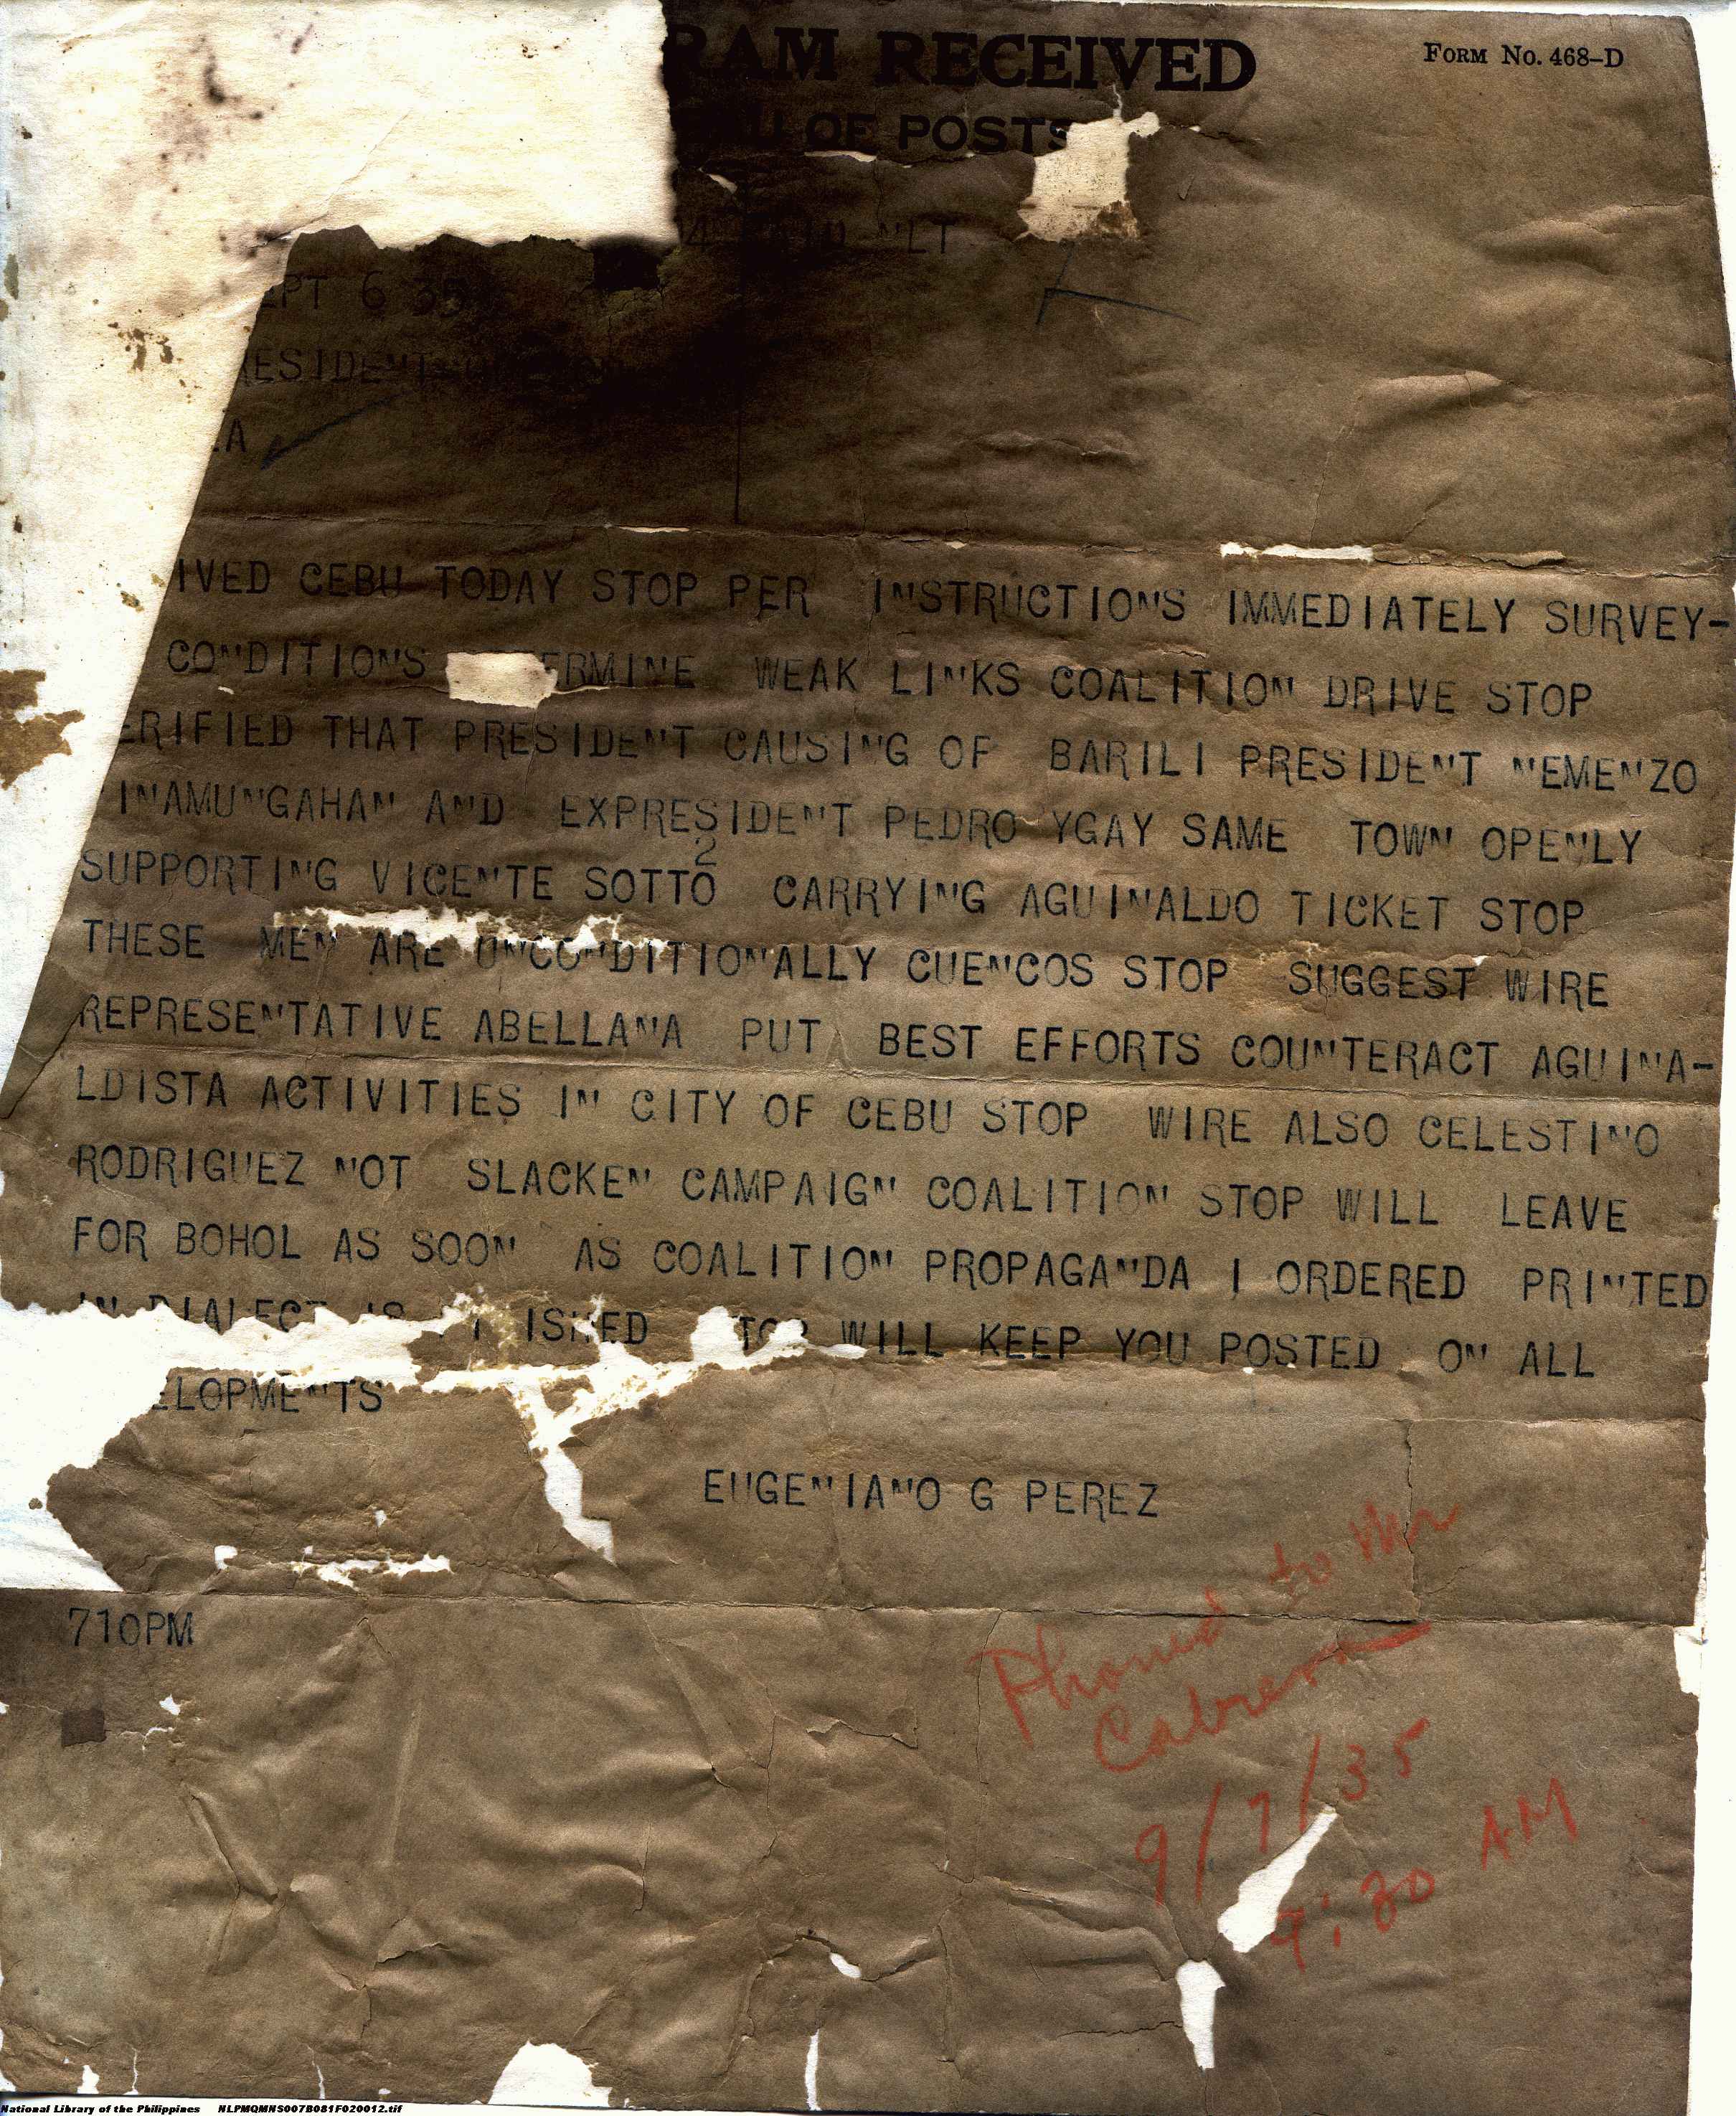 RAM RECEIVED
FORM No. 468-D
U OF POSTS
NLT
EPT 6 35
RESIDENT
.A
IVED CEBU TODAY STOP PER INSTRUCTIONS IMMEDIATELY SURVEY-
CONDITIONS ERMINE WEAK LINKS COALITION DRIVE STOP
ERIFIED THAT PRESIDENT CAUSING OF BARILI PRESIDENT NEMENZO
INAMUNGAHAN AND EXPRESIDENT PEDRO YGAY SAME TOWN OPENLY
2
SUPPORTING VICENTE SOTTO CARRYING AGUINALDO TICKET STOP
THESE MEN ARE UNCONDITIONALLY CUENCOS STOP SUGGEST WIRE
REPRESENTATIVE ABELLANA PUT BEST EFFORTS COUNTERACT AGUINA-
LDISTA ACTIVITIES IN CITY OF CEBU STOP WIRE ALSO CELESTINO
RODRIGUEZ NOT SLACKEN CAMPAIGN COALITION STOP WILL LEAVE
FOR BOHOL AS SOON AS COALITION PROPAGANDA I ORDERED PRINTED
IN DIALECT IS ISHED STOP WILL KEEP YOU POSTED ON ALL
ELOPMENTS
EUGENIANO G PEREZ
710PM
Phoned to Mr
Cabrera
9/7/35
9:30 AM
National Library of the Philippines NLPMQMNS007B081F020012.tif